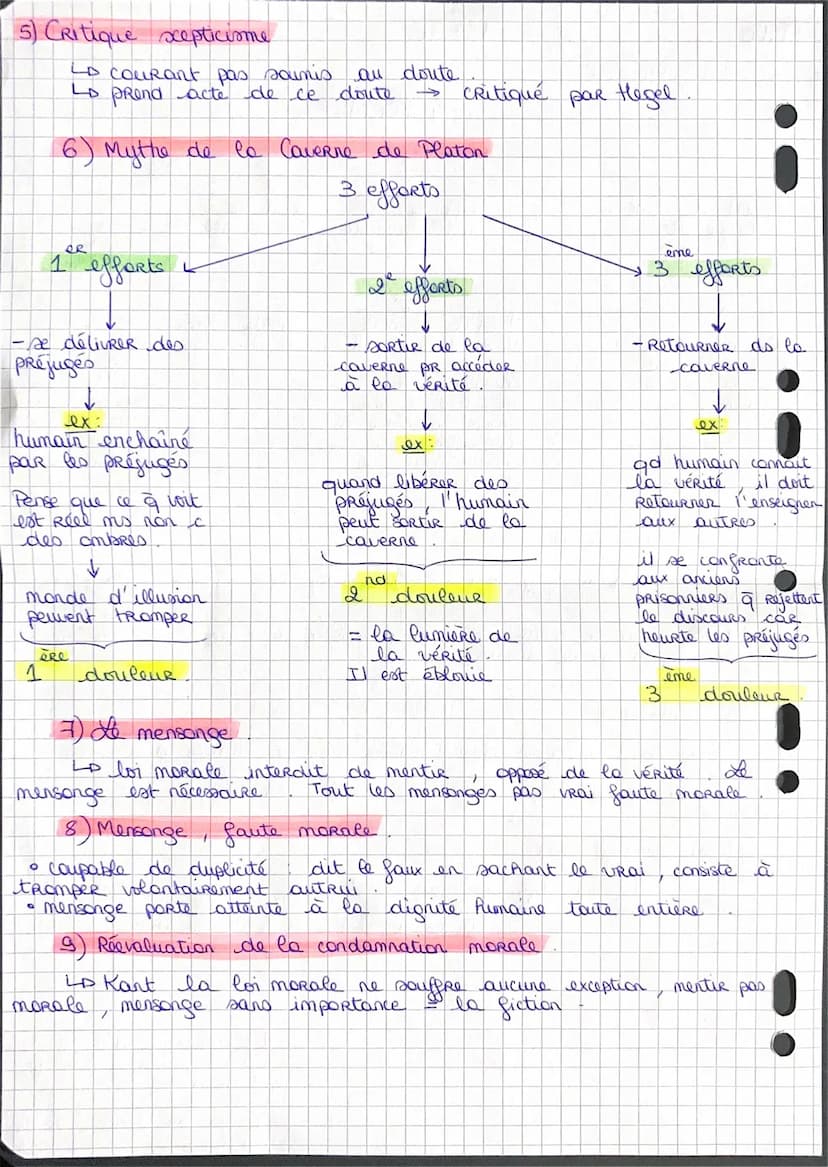 5) Critique scepticisme
↳ courant pas soumis au doute.
↳ prend acte de ce doute → critiqué par Hegel.
6) Mythe de la Caverne de Platon
3 efforts
1er efforts
- se délivrer des
préjugés
ex:
humain enchaîné
par les préjugés
Pense que ce q̄ voit
est réel ms non c
des ombres.
monde d'illusion
peuvent tromper
1ère douleur.
2e efforts
- sortir de la
caverne pr accéder
à la vérité.
ex:
quand libérer des
préjugés, l'humain
peut sortir de la
caverne.
2nd douleur
= la lumière de
la vérité.
Il est éblouie
3ème efforts
- Retourner ds la
caverne
ex:
qd humain connait
la vérité, il doit
retourner l'enseigner
aux autres.
il se confronte
aux anciens
prisonniers q̄ rejettent
le discours car
heurte les préjugés
3ème douleur.
7) Le mensonge.
↳ loi morale interdit de mentir, opposé de la vérité. Le
mensonge est nécessaire. Tout les mensonges pas vrai faute morale.
8) Mensonge, faute morale.
• coupable de duplicité : dit le faux en sachant le vrai, consiste à
tromper volontairement autrui.
• mensonge porte atteinte à la dignité humaine toute entière.
9) Réevaluation de la condamnation morale.
↳ Kant la loi morale ne souffre aucune exception, mentir pas
morale, mensonge sans importance = la fiction.